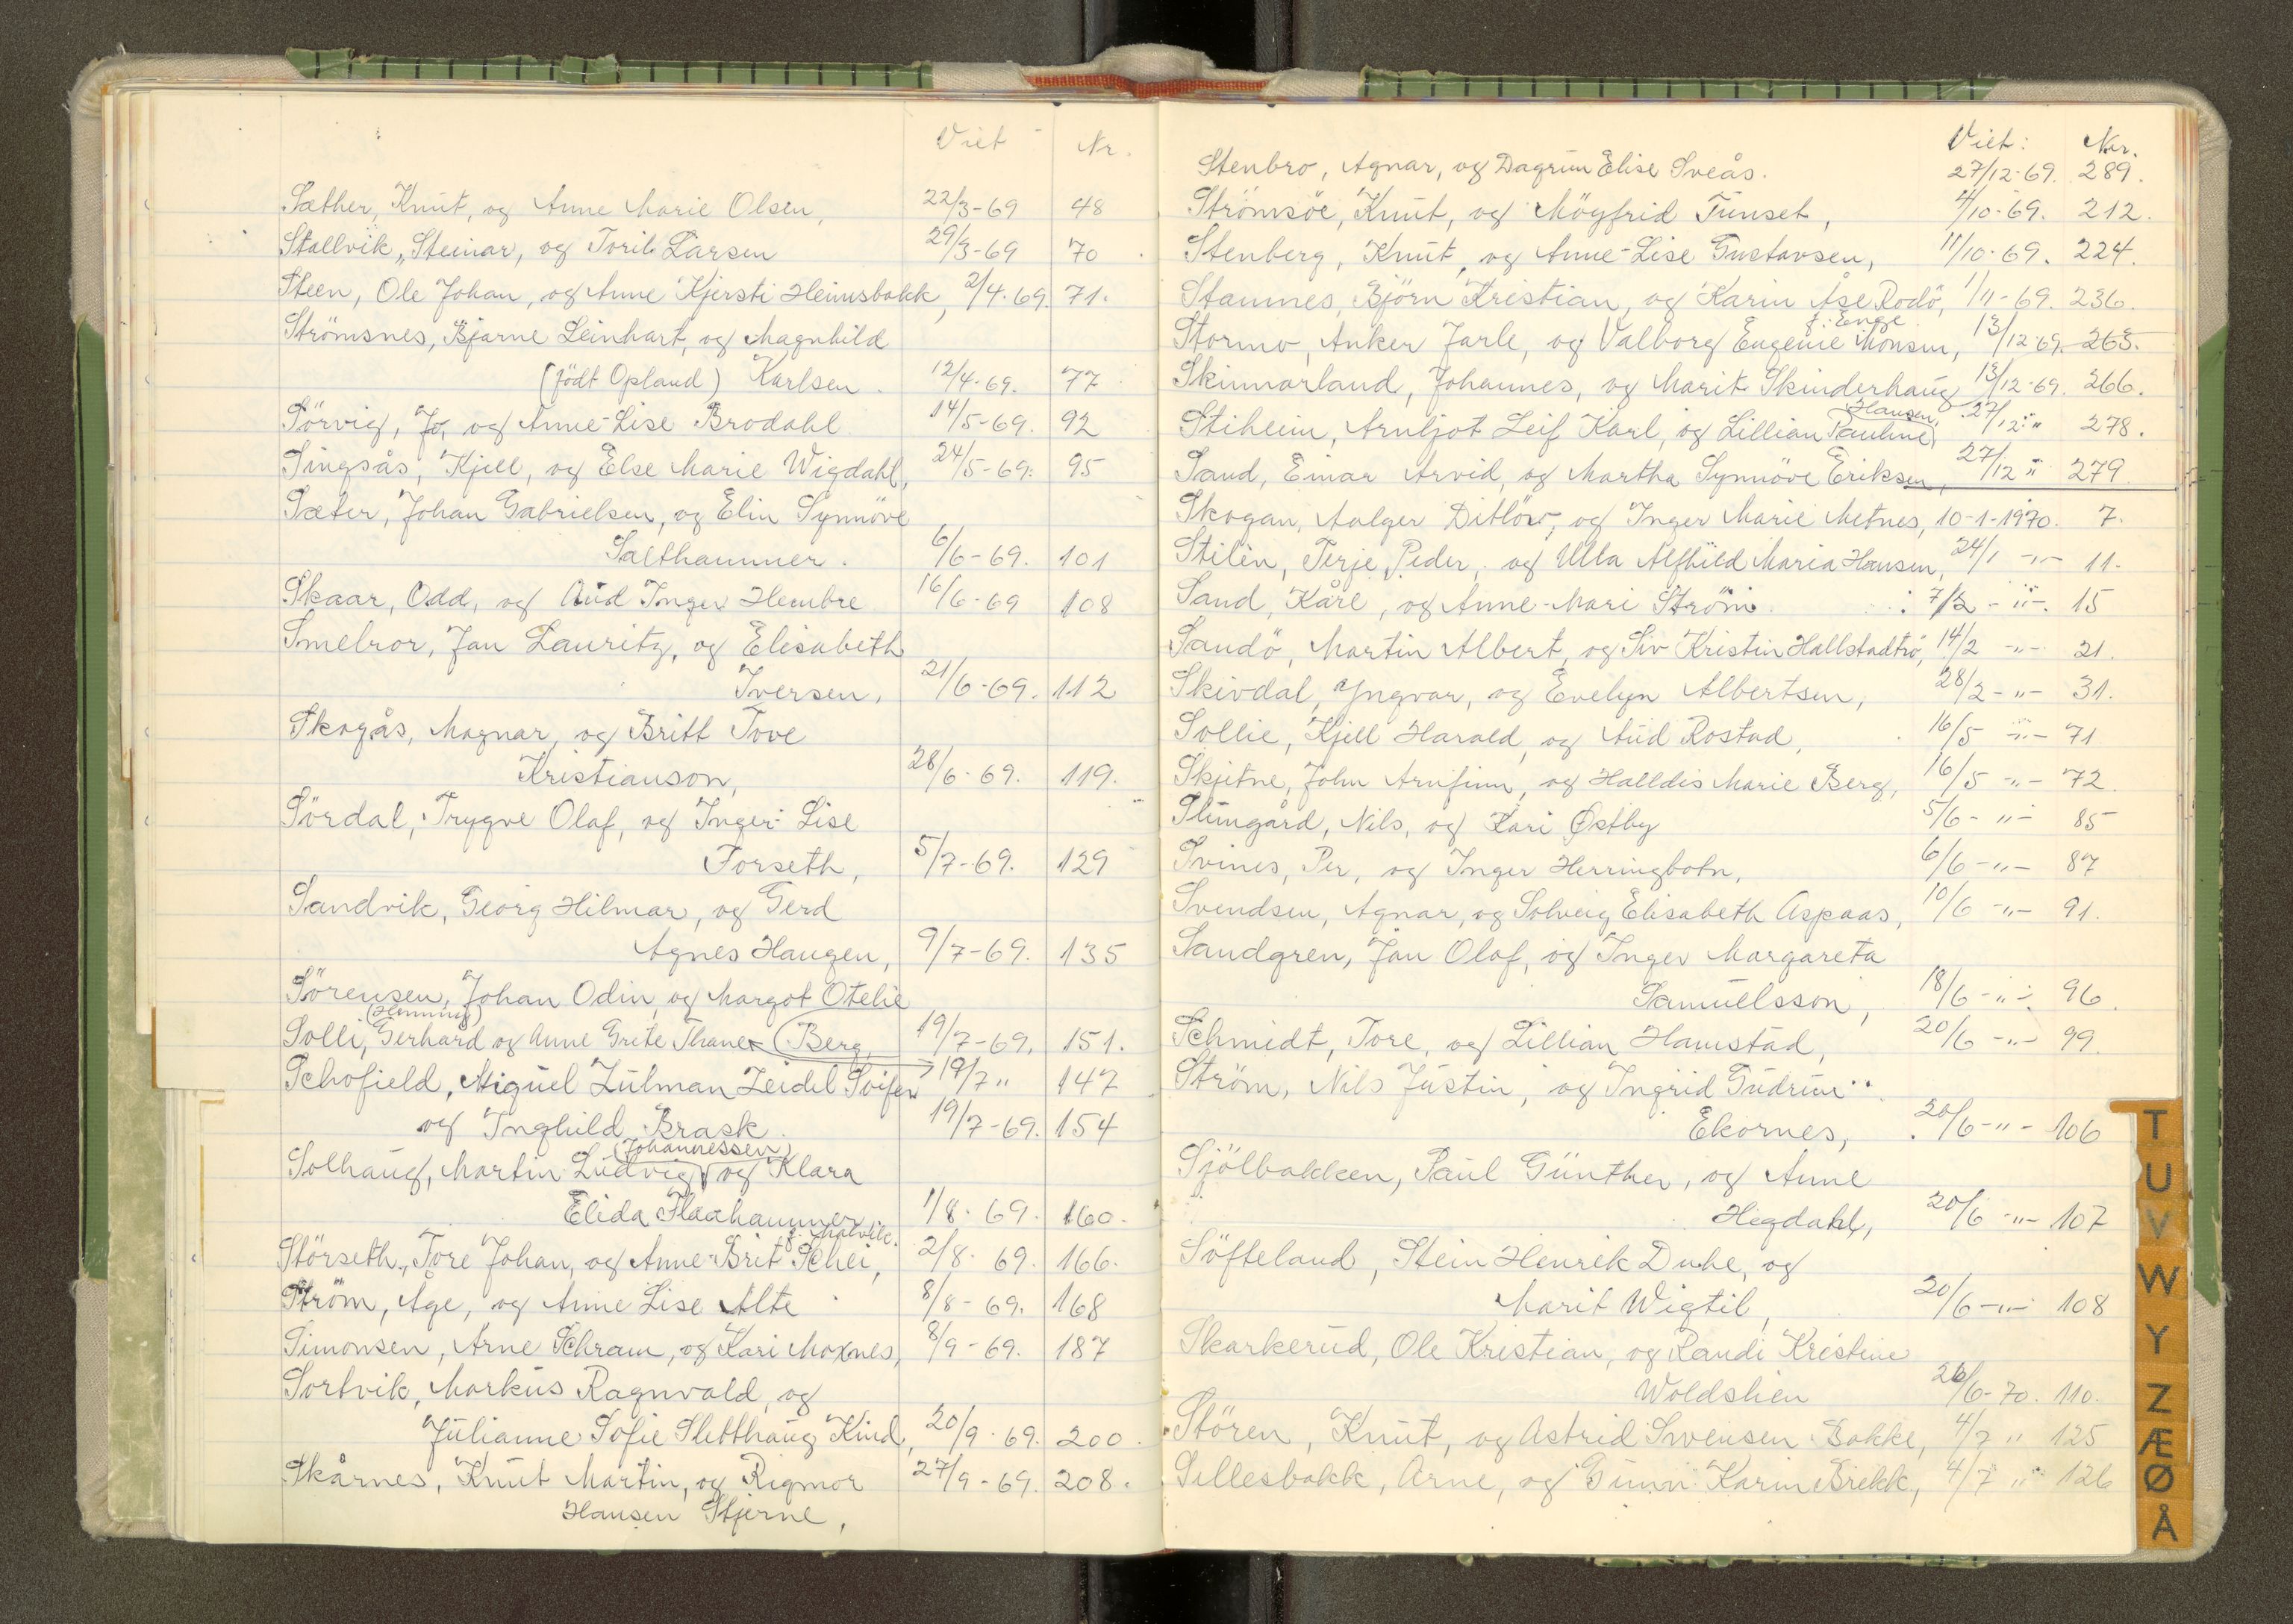 Viet Nr.
Sæther, Knut, og Anne Marie Olsen, 22/3-69 48
Stallvik, Steinar, og Toril Larsen 29/3-69 70
Steen, Ole Johan, og Anne Kjersti Heimsbakk, 2/4-69. 71.
Strömsnes, Bjarne Leinhart, og Magnhild
(födt Opland) Karlsen. 12/4-69. 77
Sörvig, Jo, og Anne-Lise Brodahl 14/5-69. 92
Singsås, Kjell, og Else Marie Wigdahl, 24/5-69. 95
Sæter, Johan Gabrielsen, og Elin Synnöve
Salthammer. 6/6-69. 101
Skaar, Odd, og Aud Inger Hembre 16/6-69 108
Smelror, Jan Lauritz, og Elisabeth
Iversen, 21/6-69. 112
Skogås, Magnar, og Britt Tove
Kristianson, 28/6-69. 119.
Sördal, Trygve Olaf, og Inger-Lise
Forseth, 5/7-69. 129
Sandvik, Georg Hilmar, og Gerd
Agnes Haugen, 9/7-69. 135
Sörensen, Johan Odin, og Margot Otelie
(Henning)
Solli, Gerhard og Anne Grete Thanex Berg, 19/7-69. 151.
Schofield, Miguel Zulman Zeidel Svifer 19/7 " 147
og Inghild Brask. 19/7-69. 154
(Johannessen)
Solhaug, Martin Ludvig, og Klara
Elida Flaahammer, 1/8-69. 160.
f. Malvik.
Störseth, Tore Johan, og Anne-Brit Schei, 2/8-69. 166.
Ström, Åge, og Anne Lise Alte 8/8-69. 168
Simonsen, Arne Schram, og Kari Moxnes, 8/9-69. 187
Sortvik, Markus Ragnvald, og
Julianne Sofie Sletthaug Kind, 20/9-69. 200.
Skårnes, Knut Martin, og Rigmor 27/9-69. 208.
Hansen Stjerne,
Viet: Nr.
Stenbro, Agnar, og Dagrun Elise Sveås. 27/12-69. 289.
Strömsöe, Knut, og Möyfrid Tunset, 4/10-69. 212.
Stenberg, Knut, og Anne-Lise Gustavsen, 11/10-69. 224.
Stamnes, Björn Kristian, og Karin Åse Rodö, 1/11-69. 236.
f. Enge
Stormo, Anker Jarle, og Valborg Eugenie Monsen, 13/12-69. 265.
Skinnarland, Johannes, og Marit Skinderhaug 13/12-69. 266.
Hansen,
Stiheim, Arnljot Leif Karl, og Lillian Pauline, 27/12 " 278.
Sand, Einar Arvid, og Martha Synnöve Eriksen, 27/12 " 279
Skogan, Aalger Ditlöw, og Inger Marie Metnes, 10-1-1970. 7.
Stilèn, Terje Peder, og Ulla Alfhild Maria Hansen, 24/1 -"- 11.
Sand, Kåre, og Anne-Mari Ström. 7/2 -"-. 15
Sandö, Martin Albert, og Siv Kristin Hallstadtrö, 14/2 -"- 21.
Skivdal, Yngvar, og Evelyn Albertsen, 28/2 -"- 31.
Sollie, Kjell Harald, og Aud Rostad, 16/5 -"- 71
Skjitne, John Arnfinn, og Halldis Marie Berg, 16/5 -"- 72
Slungård, Nils, og Kari Østby 5/6 -"- 85
Svines, Per, og Inger Herringbotn, 6/6 -"- 87
Svendsen, Agnar, og Solveig Elisabeth Aspaas, 10/6 -"- 91.
Sandgren, Jan Olof, og Inger Margareta
Samuelsson, 18/6 -"-. 96.
Schmidt, Tore, og Lillian Hamstad, 20/6 -"- 99.
Ström, Nils Justin, og Ingrid Gudrun
Ekornes, 20/6 -"- 106
Sjölbakken, Paul Günther, og Anne
Hegdahl, 20/6 -"- 107
Söfteland, Stein Henrik Duhe, og
Marit Wigtil, 20/6 -"- 108
Skarkerud, Ole Kristian, og Randi Kristine
Woldslien 26/6-70. 110.
Stören, Knut, og Astrid Svensen Bakke, 4/7 " 125
Sellesbakk, Arne, og Gunn Karin Brekk, 4/7 " 126
T
U
V
W
Y
Z
Æ
Ø
Å